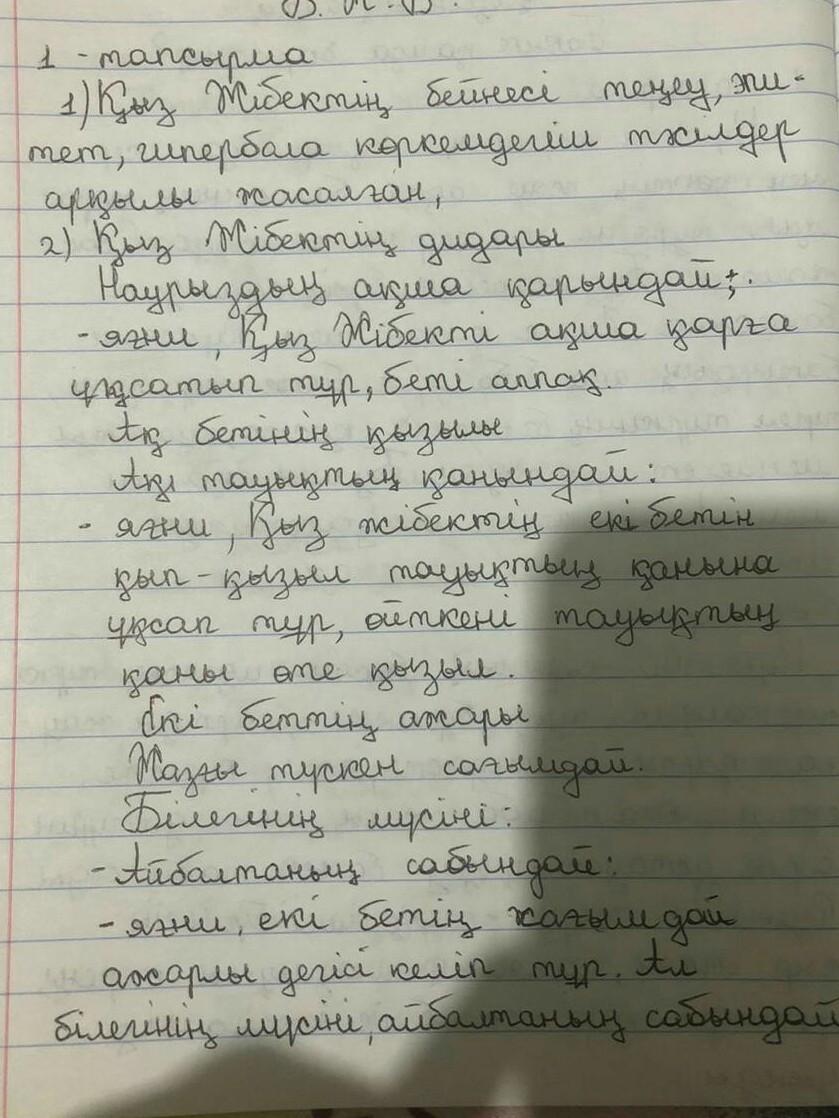 1 - тапсырма
1) Қыз Жібектің бейнесі теңеу, эпи-
тет, гипербола көркемдегіш тәсілдер
арқылы жасалған,
2) Қыз Жібектің дидары
Наурыздың ақша қарындай;.
- яғни, Қыз Жібекті ақша қарға
ұқсатып тұр, беті аппақ.
Ақ бетінің қызылы
Ақ тауықтың қанындай:
- яғни, Қыз жібектің екі бетін
қып-қызыл тауықтың қанына
ұқсап тұр, өйткені тауықтың
қаны өте қызыл.
Екі беттің ажары
Жазғы түскен сағымдай.
Білегінің мүсіні:
- Айбалтаның сабындай:
- яғни, екі бетің жағымдай
ажарлы дегісі келіп тұр. Ал
білегінің мүсіні, айбалтаның сабындай